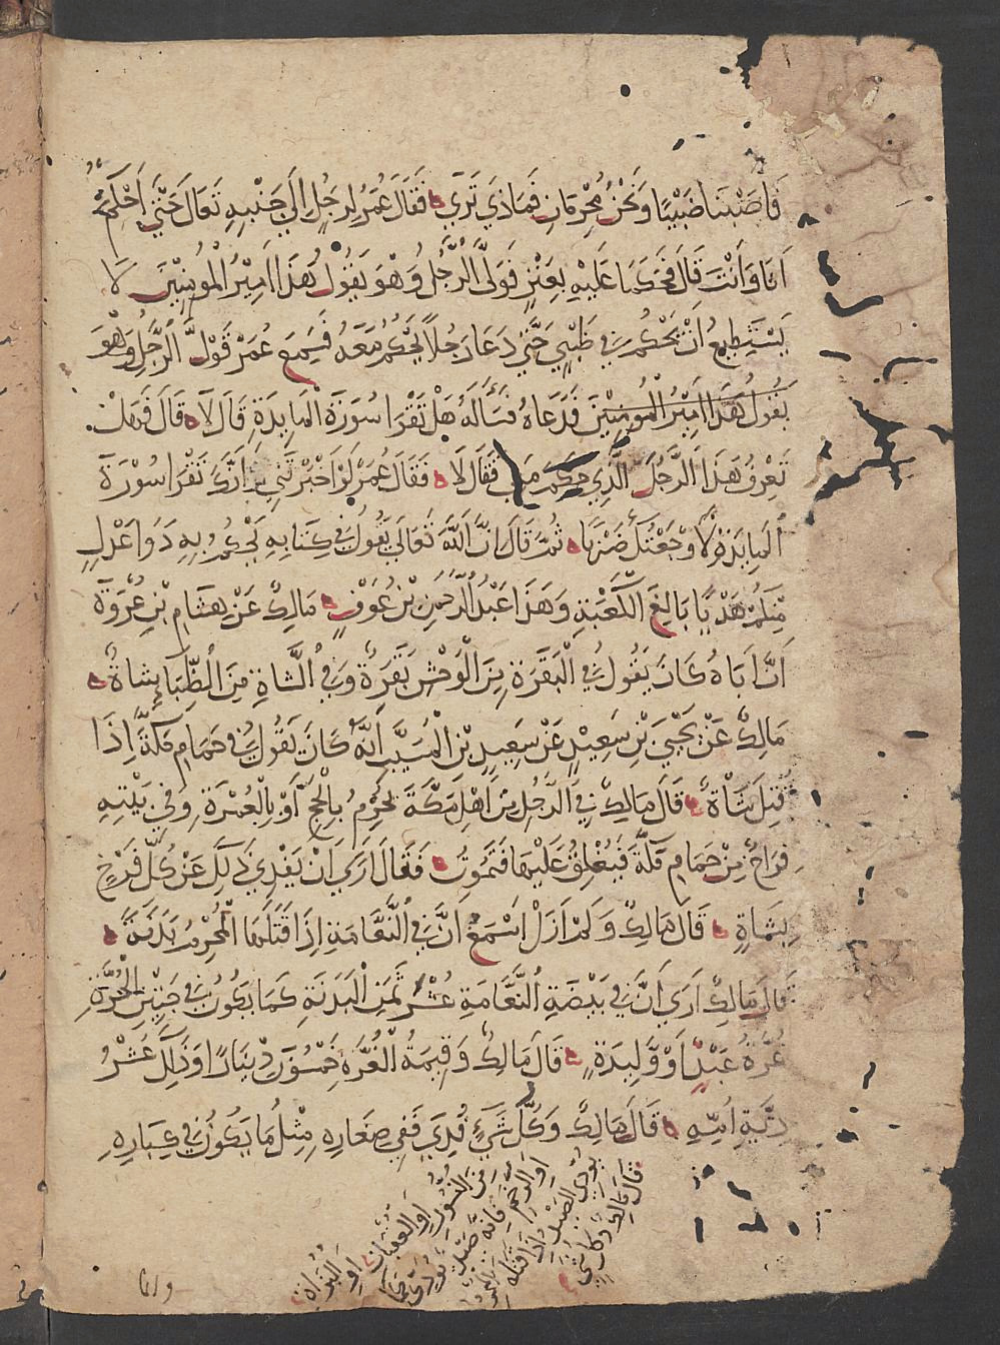 فَاَصَبْنَا ضَبْيًا وَنَحْنُ مُحْرِمَانِ فَمَاذَي تَرَي فَقَالَ عُمَرُ لِرَجُلٍ اِلَي جَنْبِهِ تَعَالَ حَتَّي اَحْكُمُ
اَنَا وَاَنْتَ قَالَ فَحَكَمَا عَلَيْهِ بِعَنْزٍ فَوَلَّي الرَّجُلُ وَهْوَ يَقُولُ هَذَا اَمِيْرُ الْمُومِنِيْنَ لَا
يَسْتَطِيعُ اَنْ يَحْكُمَ فِي ظَبْيٍ حَتَّي دَعَا رَجُلاً يَحْكُمُ مَعَهُ فَسَمِعَ عُمَرُ قَوْلَ الرَّجُلِ وَهْوَ
يَقُولُ هَذَا اَمِيْرُ الْمُومِنِيْنَ فَدَعَاهُ فَسَأَلَهُ هَلْ تَقْرَا سُورَةَ الْمَايِدَةِ قَالَ لَا قَالَ فَهَلْ
تَعْرِفُ هَذَا الرَّجُلَ الَّذِي حَكَمَ مَعِي فَقَالَ لَا فَقَالَ عُمَرُ لَوْ اَخْبَرْتَنِي اَنَّكَ تَقْرَا سُوْرَةَ
الْمَايِدَةِ لَاوْجَعْتُكَ ضَرْبًا ثُمَّ قَالَ اِنَّ اللَّهَ تَعَالَي يَقُولُ فِي كِتَابِهِ يَحْكُمُ بِهِ ذَوَا عَدْلٍ
مِنْكُمْ هَدْيًا بَالِغَ الْكَعْبَةِ وَهَذَا عَبْدُ الرَّحْمَنِ بْنُ عَوْفٍ مَالِكٌ عَنْ هِشَامِ بْنِ عُرْوَةَ
اَنَّ اَبَاهُ كَانَ يَقُولُ فِي الْبَقَرَةِ مِنَ الْوَحْشِ بَقَرَةٌ وَفِي الشَّاةِ مِنَ الظِّبَاءِ شَاةٌ
مَالِكٌ عَنْ يَحْيَي بْنِ سَعِيدٍ عَنْ سَعِيدِ بْنِ الْمُسَيَّبِ اَنَّهُ كَانَ يَقُولُ فِي حَمَامِ مَكَّةَ اِذَا
قُتِلَ شَاةٌ قَالَ مَالِكٌ فِي الرَّجُلِ مِنْ اَهْلِ مَكَّةَ يُحْرِمُ بِالْحَجِّ اَوْ بِالْعُمْرَةِ وَفِي بَيْتِهِ
فِرَاخٌ مِنْ حَمَامِ مَكَّةَ فَيُغْلِقُ عَلَيْهَا فَتَمُوتُ فَقَالَ اَرَي اَنْ يَفْدِيَ ذَلِكَ عَنْ كُلِّ فَرْخٍ
بِشَاةٍ قَالَ مَالِكٌ وَلَمْ اَزَلْ اَسْمَعُ اَنَّ فِي النَّعَامَةِ اِذَا قَتَلَهَا الْمُحْرِمُ بَدَنَةً
قَالَ مَالِكٌ اَرَي اَنَّ فِي بَيْضَةِ النَّعَامَةِ عُشْرَ ثَمَنِ الْبَدَنَةِ كَمَا يَكُونُ فِي جَنِيْنِ الْحُرَّةِ
غُرَّةُ عَبْدٍ اَوْ وَلِيدَةٍ قَالَ مَالِكٌ وَقِيمَةُ الْغُرَّةِ خَمْسُوْنَ دِيْنَارًا وَذَلِكَ عُشْرُ
دِيَّةِ اُمِّهِ قَالَ مَالِكٌ وَكُلُّ شَيْءٍ فُدِيَ فَفِي صِغَارِهِ مِثْلُ مَا يَكُونُ فِي كِبَارِهِ
قَالَ مَالِكٌ وَكُلُّ شَيْءٍ
مِنَ النُّسُورِ اَوِ الْعُقْبَانِ اَوِ الْبُزَاةِ
اَوِ الرَّخَمِ فَاِنَّهُ صَيْدٌ يُودَي كَمَا
يُودَي الصَّيْدُ اِذَا قَتَلَهُ